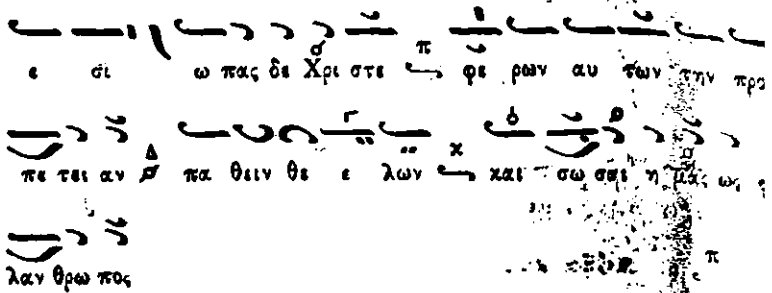 ε σι ω πας δε Χρι στε φε ρων αυ των την προ
πε τει αν πα θειν θε ε λων και σω σαι η μας ως
λαν θρω πος